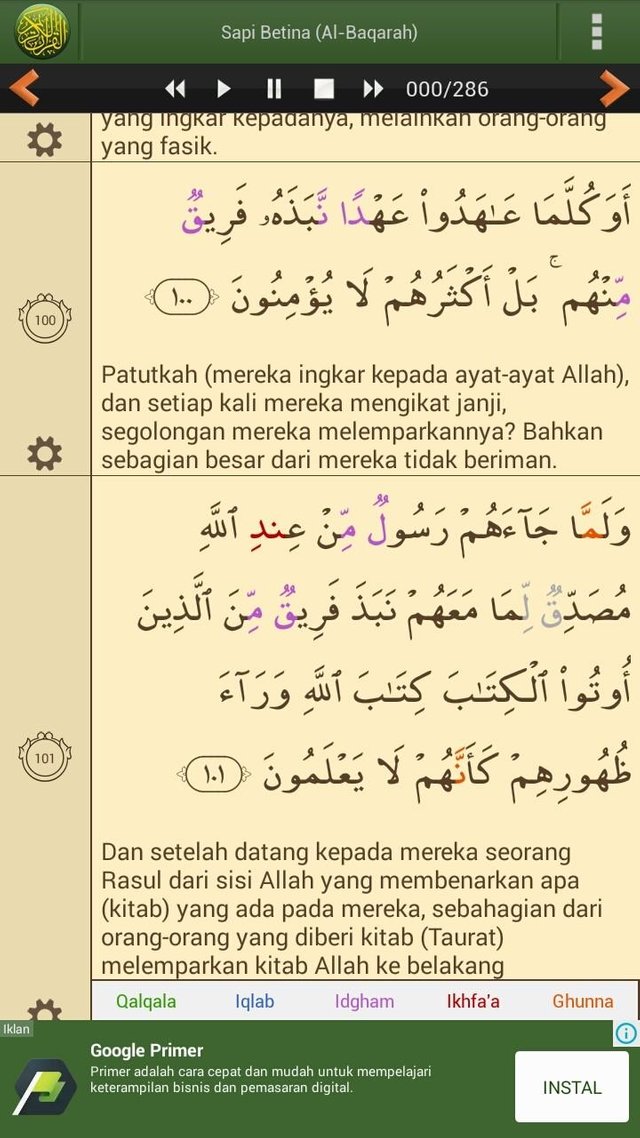 Sapi Betina (Al-Baqarah)
000/286
yang ingkar kepadanya, melainkan orang-orang
yang fasik.
أَوَكُلَّمَا عَـٰهَدُوا۟ عَهْدًا نَّبَذَهُۥ فَرِيقٌ
مِّنْهُم ۚ بَلْ أَكْثَرُهُمْ لَا يُؤْمِنُونَ ﴿١٠٠﴾
100
Patutkah (mereka ingkar kepada ayat-ayat Allah),
dan setiap kali mereka mengikat janji,
segolongan mereka melemparkannya? Bahkan
sebagian besar dari mereka tidak beriman.
وَلَمَّا جَآءَهُمْ رَسُولٌ مِّنْ عِندِ ٱللَّهِ
مُصَدِّقٌ لِّمَا مَعَهُمْ نَبَذَ فَرِيقٌ مِّنَ ٱلَّذِينَ
أُوتُوا۟ ٱلْكِتَـٰبَ كِتَـٰبَ ٱللَّهِ وَرَآءَ
ظُهُورِهِمْ كَأَنَّهُمْ لَا يَعْلَمُونَ ﴿١٠١﴾
101
Dan setelah datang kepada mereka seorang
Rasul dari sisi Allah yang membenarkan apa
(kitab) yang ada pada mereka, sebahagian dari
orang-orang yang diberi kitab (Taurat)
melemparkan kitab Allah ke belakang
Qalqala Iqlab Idgham Ikhfa'a Ghunna
Iklan
Google Primer
Primer adalah cara cepat dan mudah untuk mempelajari
keterampilan bisnis dan pemasaran digital.
INSTAL